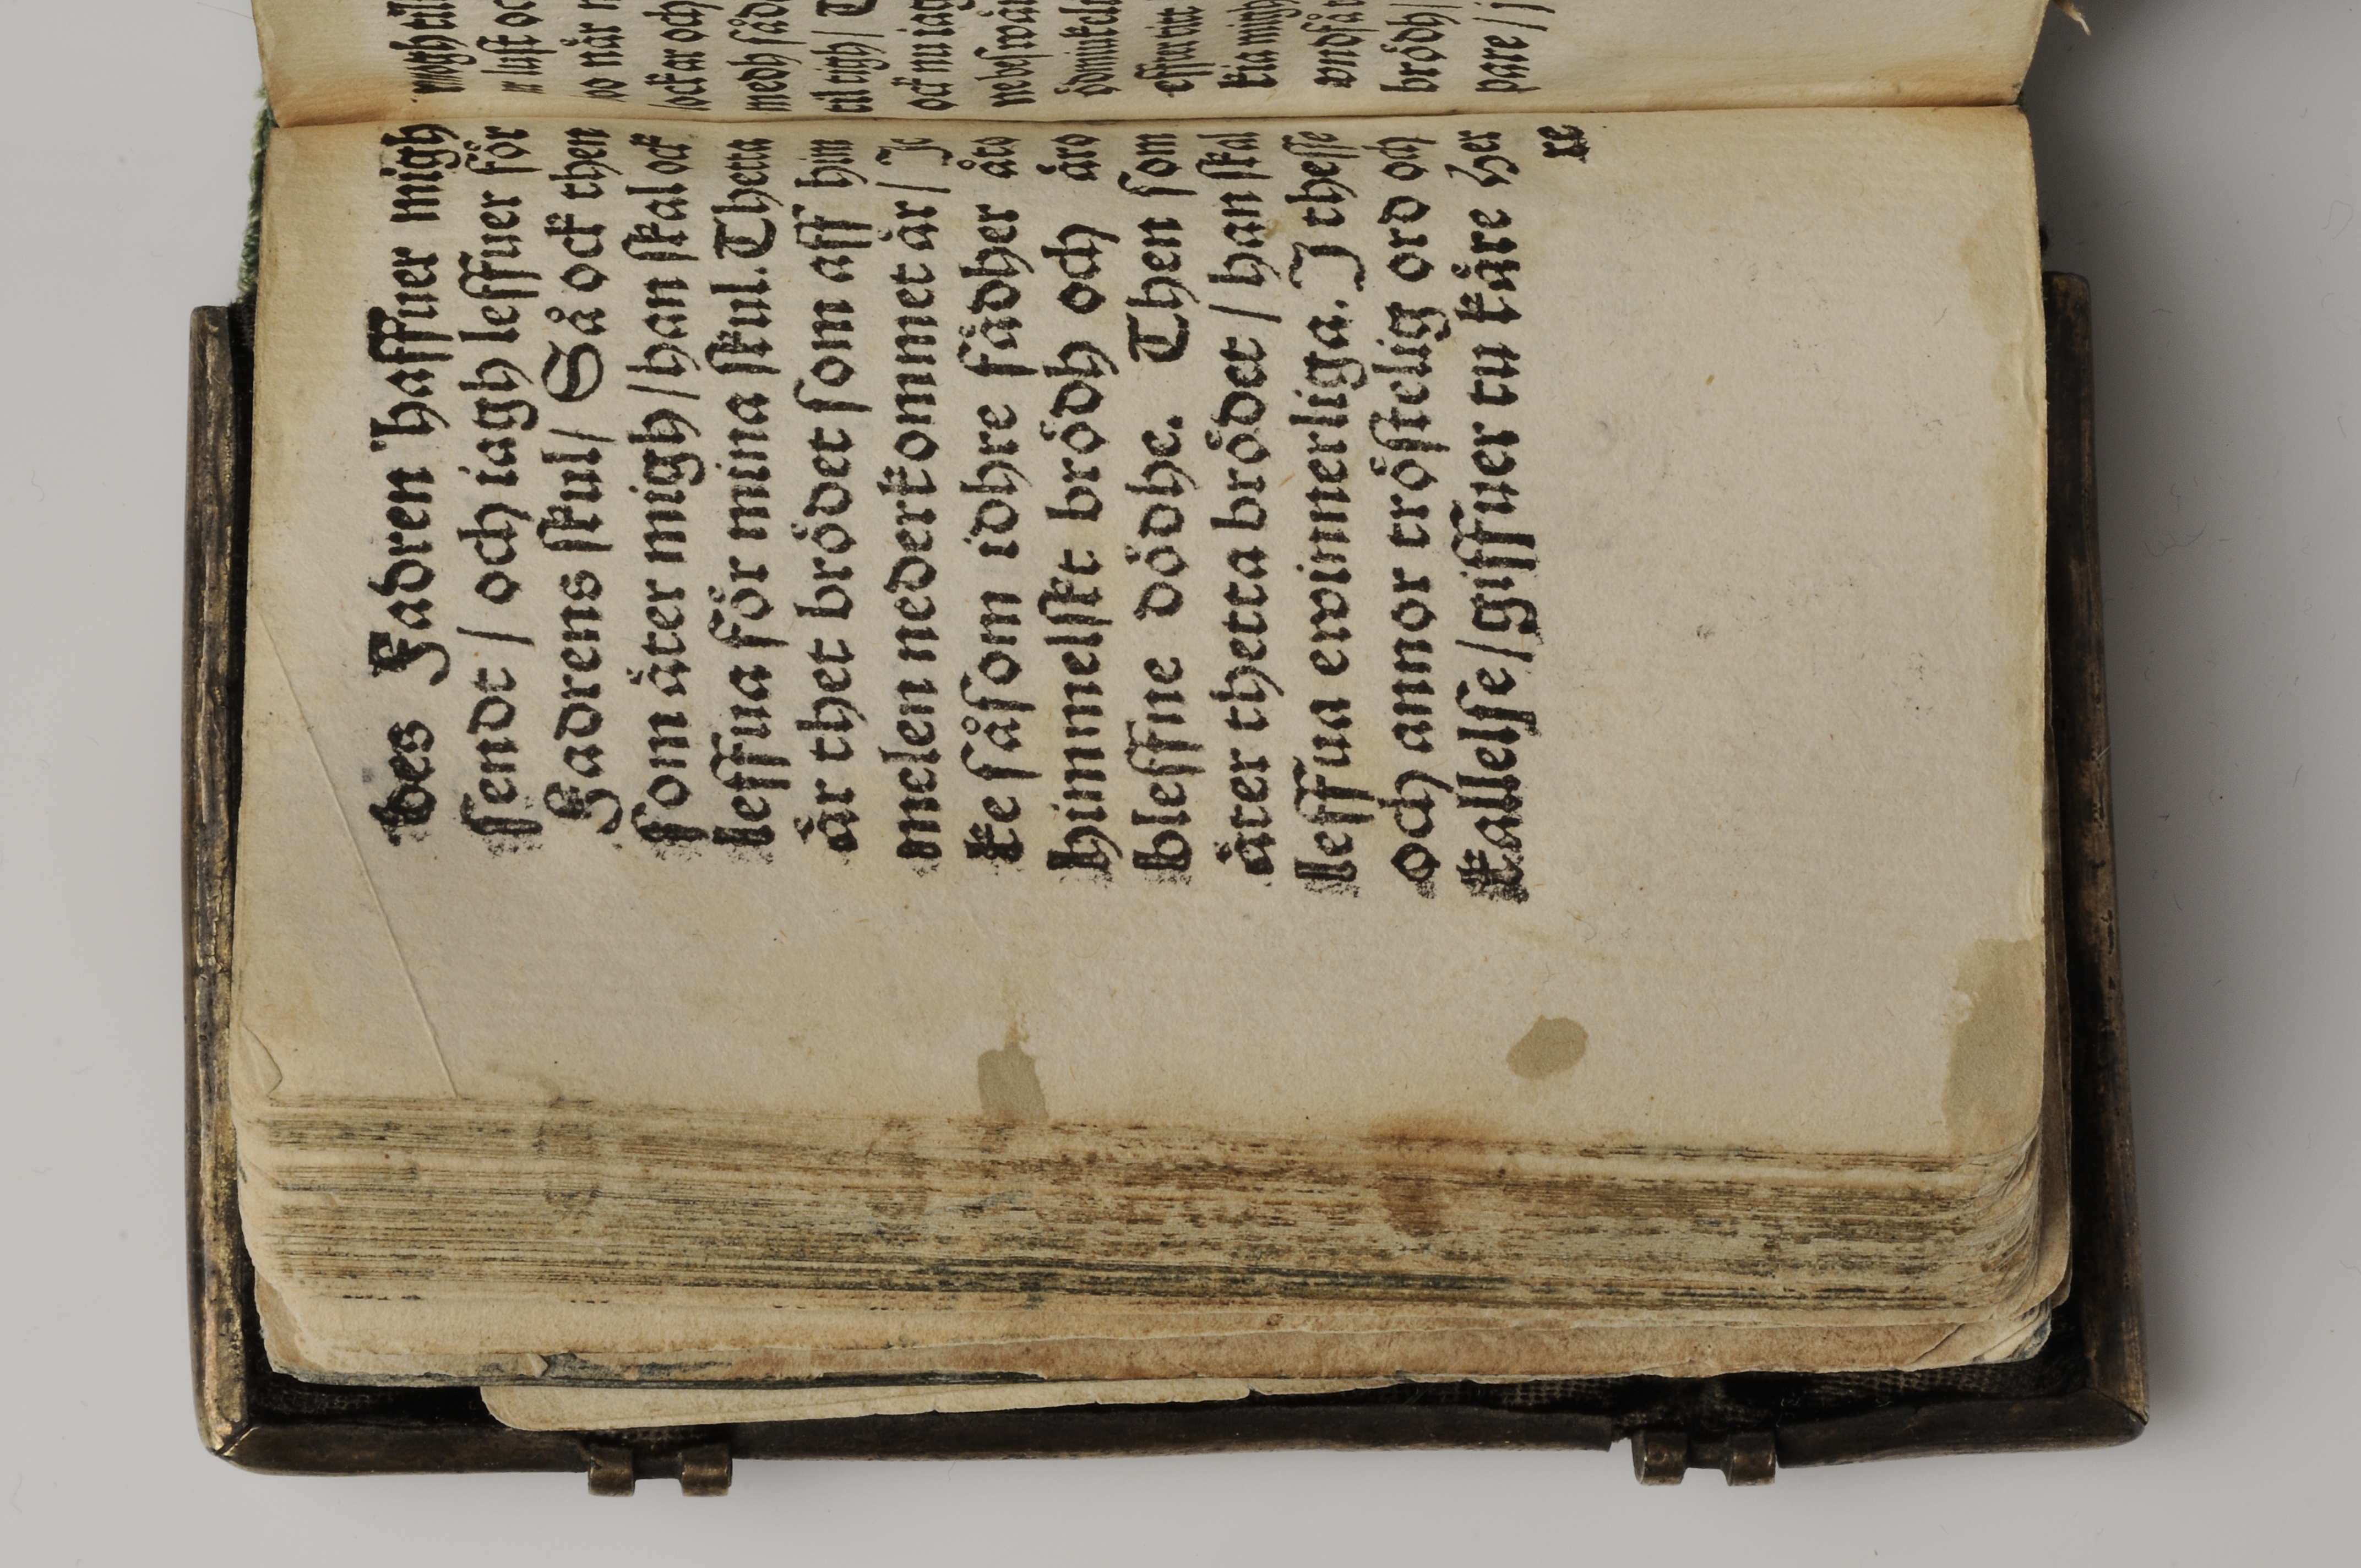 des Fadren haffuer migh
sendt / och iagh leffuer för
Fadrens skul / Så ock then
som äter migh / han skal ock
leffua för mina skul. Thetta
är thet brödet som aff him
melen nederkommet är / Ic
ke såsom idhre fädher åto
himmelskt brödh och äro
bleffne dödhe. Then som
äter thetta brödet / han skal
leffua ewinnerliga. J thesse
och annor tröstelig ord och
kallelse / giffuer tu käre Her
re
lust
när
och
medh
til tigh /
ock nu
effter titt
migh
brödh /
pare / j